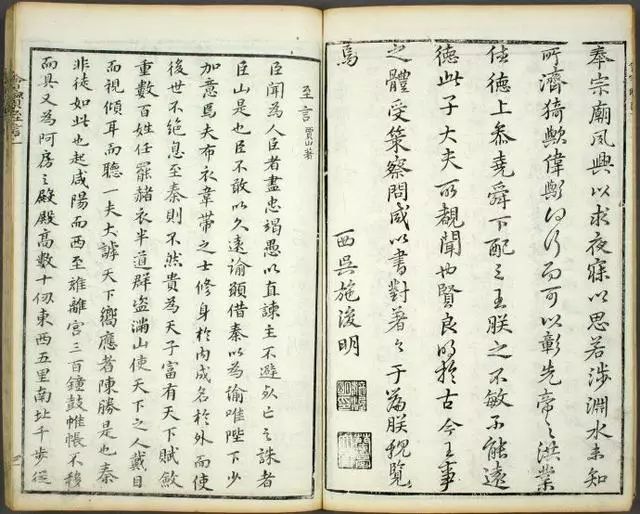 奉宗廟夙興以求夜寐以思若涉淵水未知
所濟猗歟偉歟何行而可以彰先帝之洪業
休德上叅堯舜下配三王朕之不敏不能遠
德此子大夫所覩聞也賢良明於古今王事
之體受策察問咸以書對著之于篇朕親覽
焉
西吳施浚明
至言 賈山著
臣聞為人臣者盡忠竭愚以直諫主不避死亡之誅者
臣山是也臣不敢以久遠諭願借秦以為諭唯陛下少
加意焉夫布衣韋帶之士修身於內成名於外而使
後世不絕息至秦則不然貴為天子富有天下賦斂
重數百姓任罷赭衣半道群盜滿山使天下之人戴目
而視傾耳而聽一夫大謼天下嚮應者陳勝是也秦
非徒如此也起咸陽而西至雍離宮三百鐘鼓帷帳不移
而具又為阿房之殿殿高數十仞東西五里南北千步從